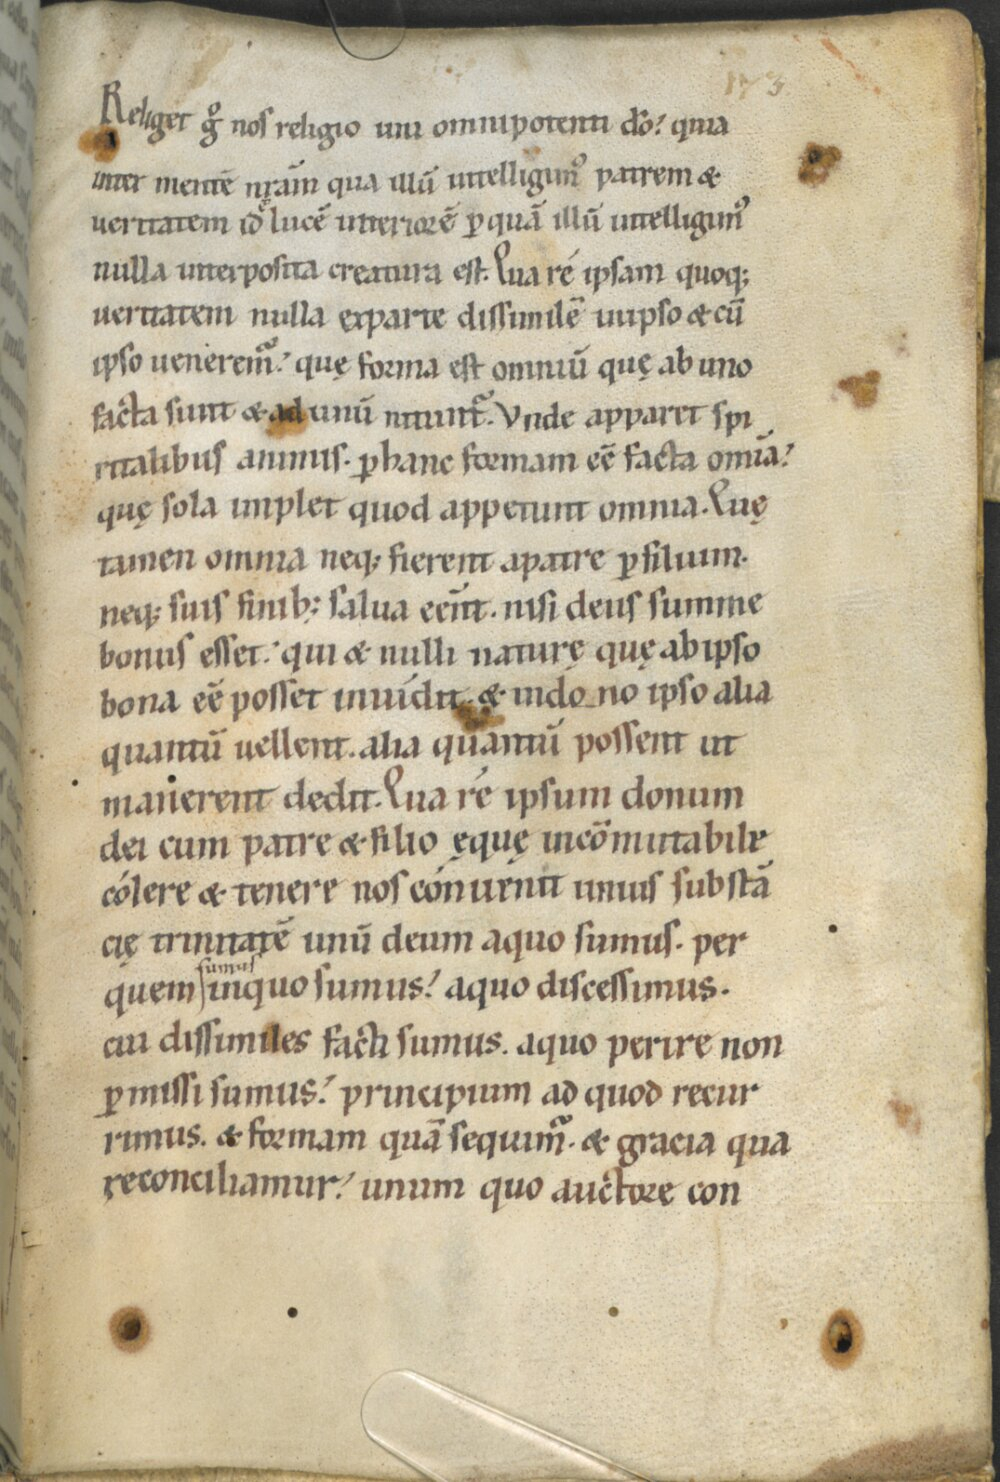 173
Religet g̊ nos religio uni omnipotenti dō? quia
inter mentē nr̄am qua illū intelligim᷒ patrem &
ueritatem id̄ lucē interiorē ꝑ quā illū intelligim᷒
nulla interposita creatura est. Qua rē ipsam quoq;
ueritatem nulla exparte dissimilē inipso & cū
ipso uenerem̃? quę forma est omniū quę ab uno
facta sunt & ad unū nitunt̃. Vnde apparet spi
ritalibus animis. ꝑ hanc formam eē facta om̄ia?
quę sola implet quod appetunt omnia. Quę
tamen omnia neq; fierent apatre ꝑ filium.
neq; suis finib; salua eēnt. nisi deus summe
bonus esset? qui & nulli naturę quę abipso
bona eē posset inuidit. & in bo no ipso alia
quantū uellent. alia quantū possent ut
manerent dedit. Qua rē ipsum donum
dei cum patre & filio ęquę incōmutabile
cólere & tenere nos cónuenit unius substā
cię trinitatē unū deum aquo sumus. per
quem sumus inquo sumus? aquo discessimus.
cui dissimiles facti sumus. aquo perire non
ꝑmissi sumus? principium ad quod recur
rimus. & formam quā sequim̃. & gracia qua
reconciliamur? unum quo auctore con